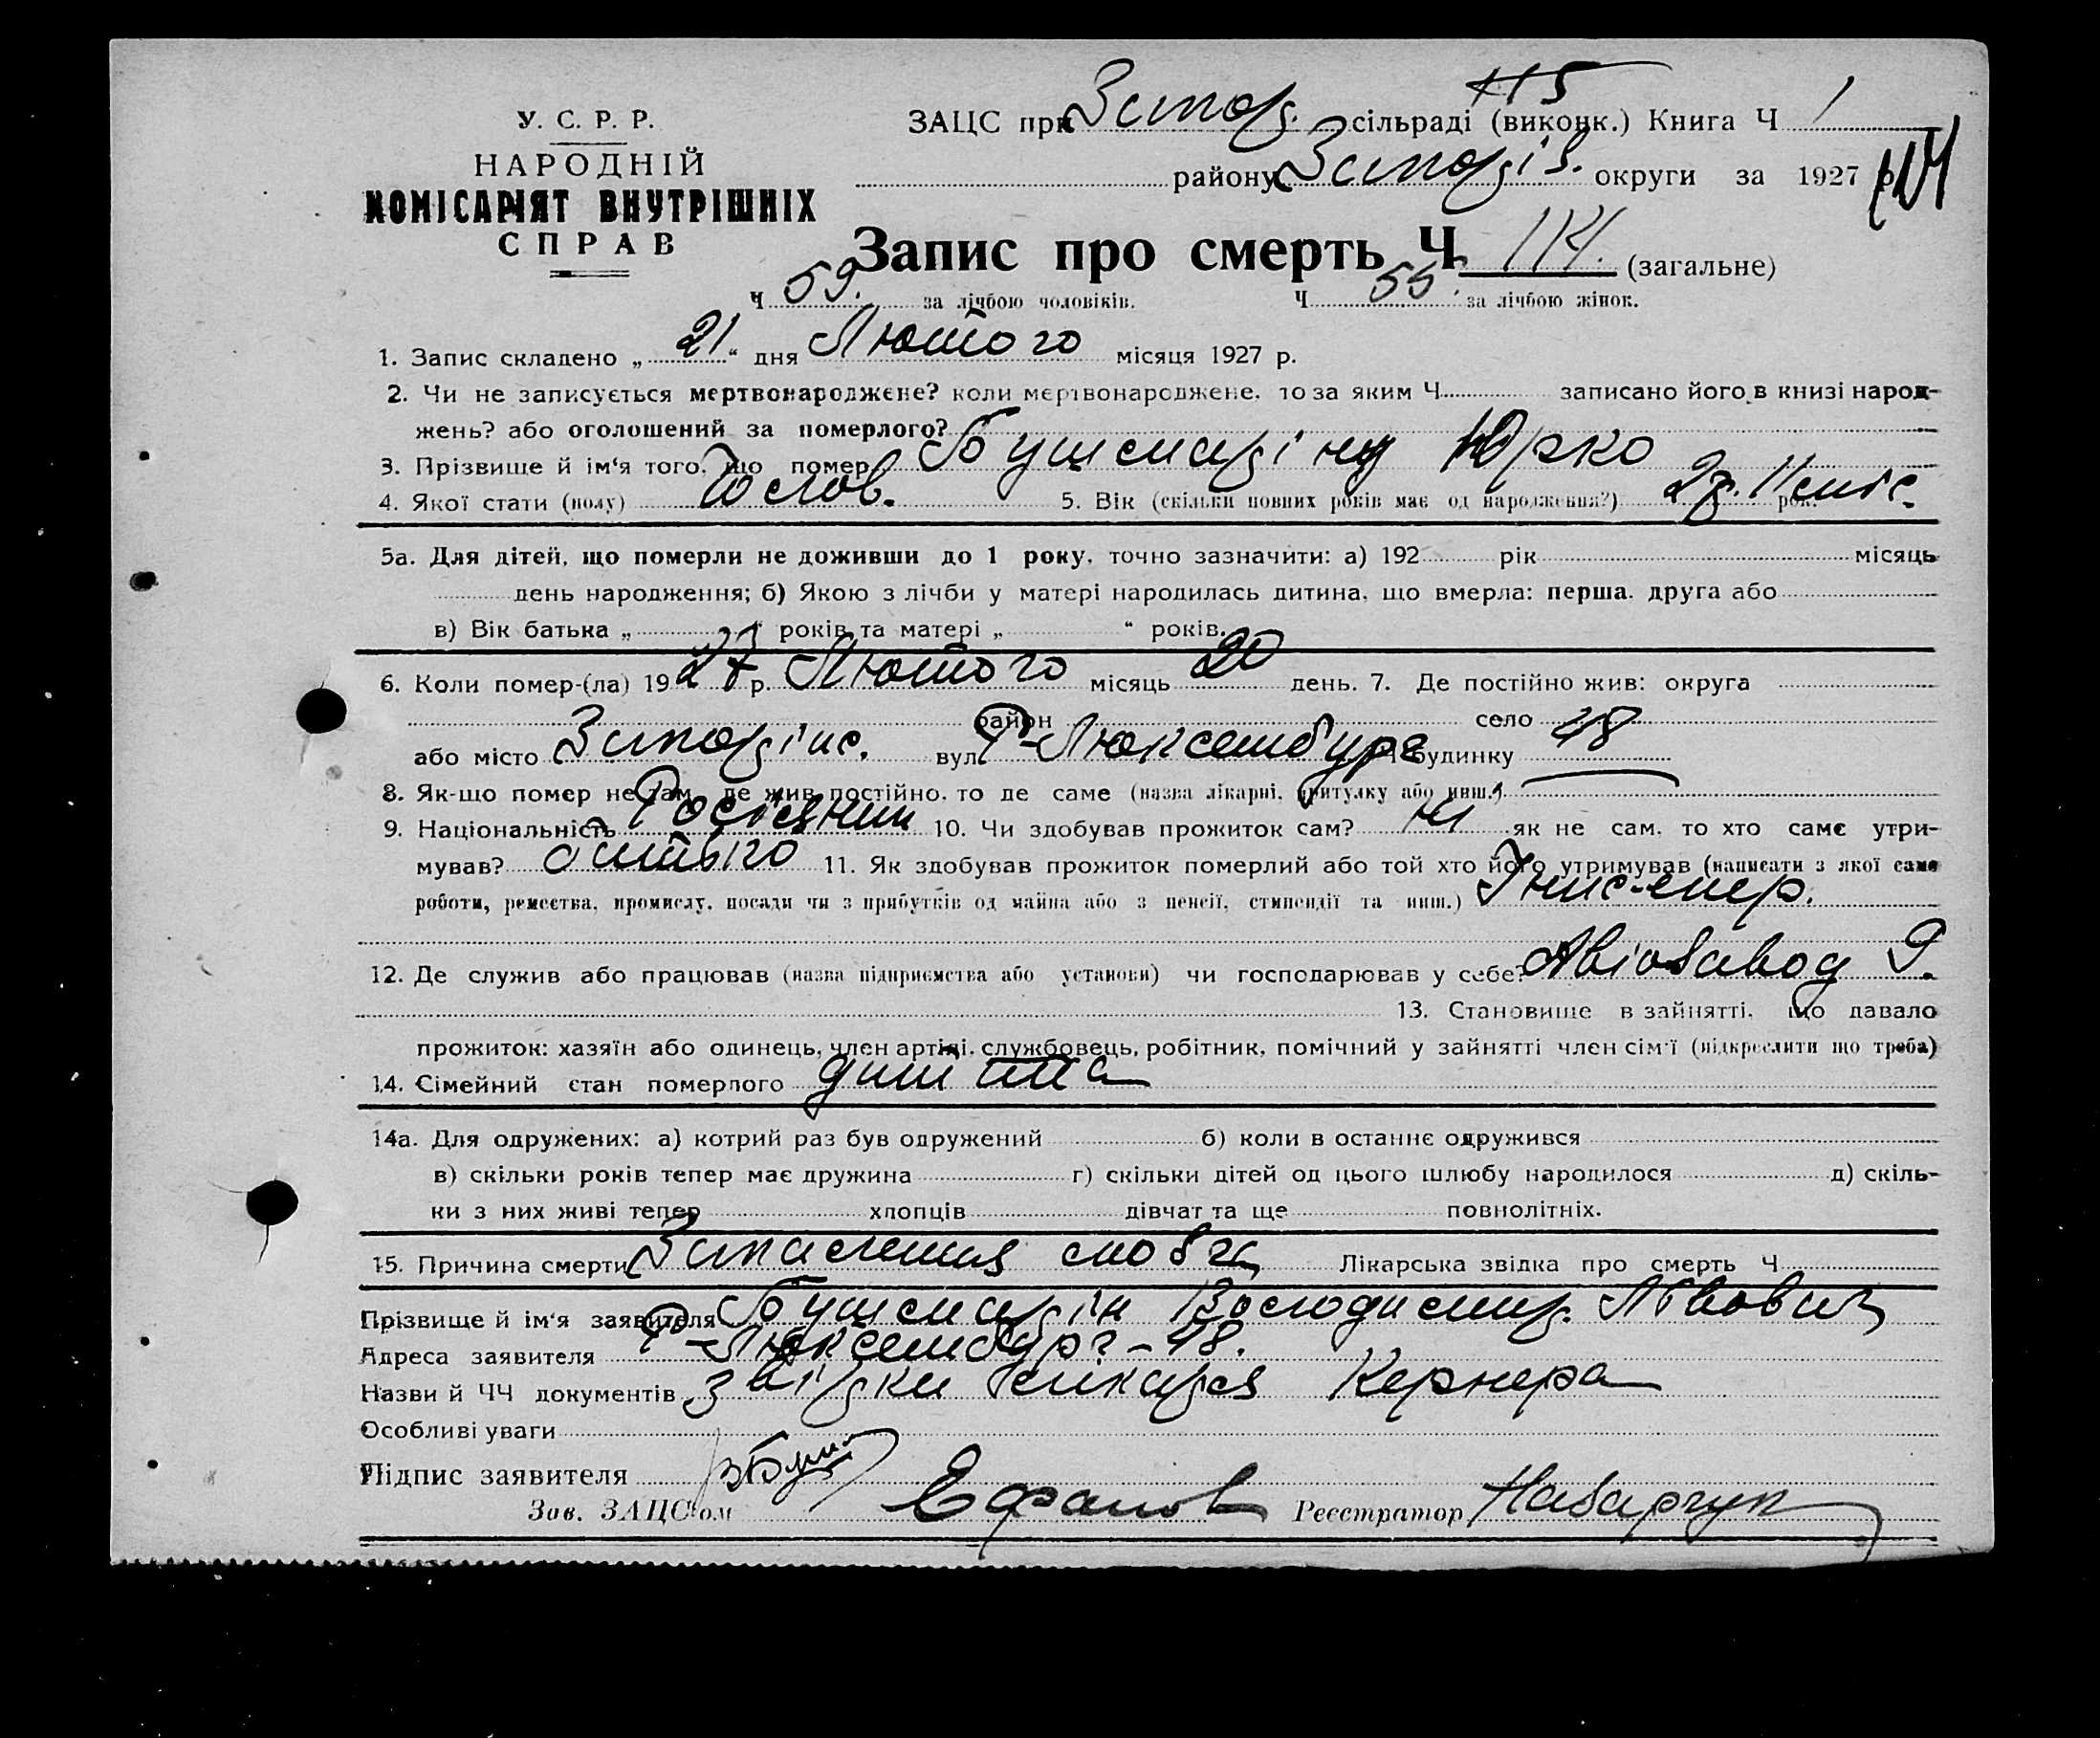 У. С. Р. Р.
НАРОДНІЙ
КОМІСАРІЯТ ВНУТРІШНІХ
СПРАВ
115
ЗАЦС при Запор. сільраді (виконк.) Книга Ч 1
району Запоріз. округи за 1927 р.
114
Запис про смерть Ч. 114. (загальне)
Ч 59. за лічбою чоловіків. Ч 55. за лічбою жінок.
1. Запис складено „ 21 “ дня Лютого місяця 1927 р.
2. Чи не записується мертвонароджене? коли мертвонароджене, то за яким Ч. записано його в книзі народ-
жень? або оголошений за померлого?
3. Прізвище й ім‘я того, що помер Бушмарін Юрко
4. Якої стати (полу) Чолов. 5. Вік (скільки повних років має од народження?) 2р. 11 міс. рок.
5а. Для дітей, що померли не доживши до 1 року, точно зазначити: а) 192 рік місяць
день народження; б) Якою з лічби у матері народилась дитина, що вмерла: перша, друга або
в) Вік батька „ “ років та матері „ “ років.
6. Коли помер-(ла) 1927 р. Лютого місяць 20 день. 7. Де постійно жив: округа
район село
або місто Запоріже. вул. Р-Люксембург Ч будинку 48
8. Як-що помер не там, де жив постійно, то де саме (назва лікарні, притулку або инш.)
9. Національність Росіянин 10. Чи здобував прожиток сам? Ні як не сам, то хто саме утри-
мував? батько 11. Як здобував прожиток померлий або той хто його утримував (написати з якої саме
роботи, ремества, промислу, посади чи з прибутків од майна або з пенсії, стипендії та инш.) Інженер.
12. Де служив або працював (назва підприємства або установи) чи господарював у себе? Авіозавод 9.
13. Становище в зайнятті, що давало
прожиток: хазяїн або одинець, член артілі, службовець, робітник, помічний у зайнятті член сім‘ї (підкреслити що треба)
14. Сімейний стан померлого дитина
14а. Для одружених: а) котрий раз був одружений б) коли в останнє одружився
в) скільки років тепер має дружина г) скільки дітей од цього шлюбу народилося д) скіль-
ки з них живі тепер хлопців дівчат та ще повнолітніх.
15. Причина смерти Запалення мозга Лікарська звідка про смерть Ч.
Прізвище й ім‘я заявителя Бушмарін Володимир. Львович
Адреса заявителя Р-Люксембург-48.
Назви й ЧЧ документів звідки лікаря Кернера
Особливі уваги
Підпис заявителя
Зав. ЗАЦС‘ом Ефанов Реєстратор Назарчук